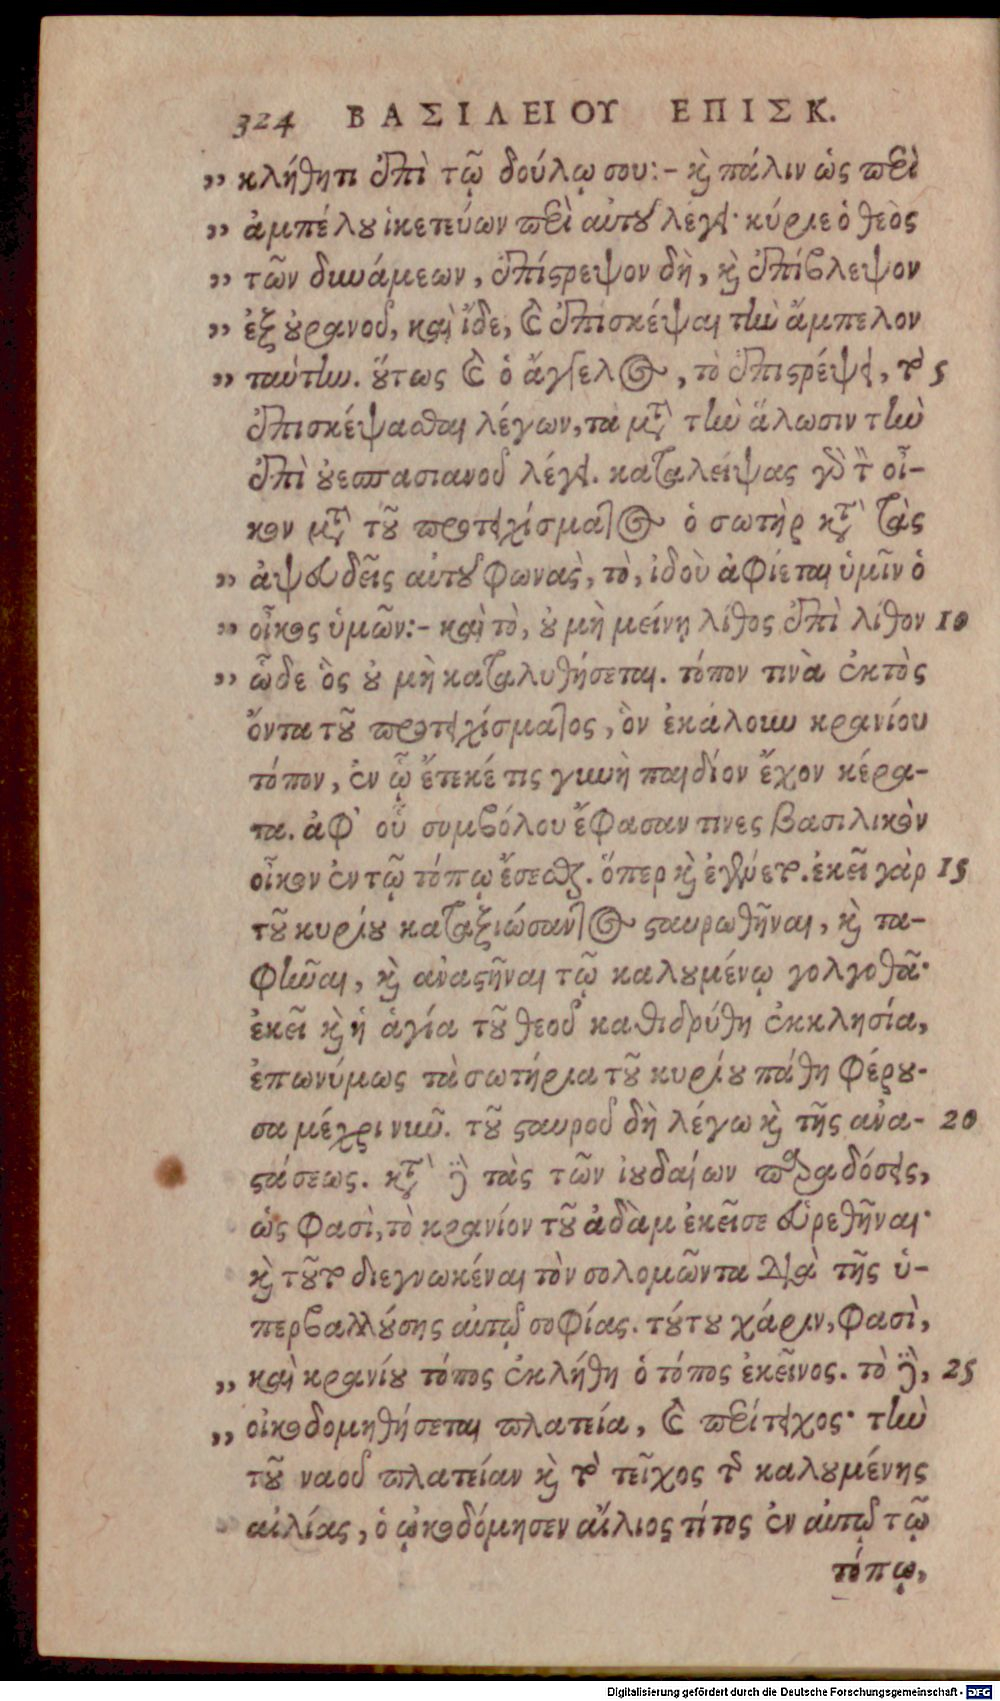 324 ΒΑΣΙΛΕΙΟΥ ΕΠΙΣΚ.
„ κλήθητι ἐπὶ τῷ δούλῳ σου:- καὶ πάλιν ὡς περὶ
„ ἀμπέλου ἱκετεύων περὶ αὐτοῦ λέγει· κύριε ὁ θεὸς
„ τῶν δυνάμεων, ἐπίστρεψον δὴ, καὶ ἐπίβλεψον
„ ἐξ οὐρανοῦ, καὶ ἴδε, καὶ ἐπισκέψαι τὴν ἄμπελον
„ ταύτην. οὕτως καὶ ὁ ἄγγελος, τὸ ἐπιστρέψει, τὸ 5
ἐπισκέψασθαι λέγων, τὰ μετὰ τὴν ἅλωσιν τὴν
ἐπὶ οὐεσπασιανοῦ λέγει. καταλείψας γὰρ τὸν οἶ-
κον μετὰ τοῦ προτειχίσματος ὁ σωτὴρ κατὰ τὰς
„ ἀψευδεῖς αὐτοῦ φωνὰς, τὸ, ἰδοὺ ἀφίεται ὑμῖν ὁ
„ οἶκος ὑμῶν:- καὶ τὸ, οὐ μὴ μείνῃ λίθος ἐπὶ λίθον 10
„ ὧδε ὃς οὐ μὴ καταλυθήσεται. τόπον τινὰ ἐκτὸς
ὄντα τοῦ προτειχίσματος, ὃν ἐκάλουν κρανίου
τόπον, ἐν ᾧ ἔτεκέ τις γυνὴ παιδίον ἔχον κέρα-
τα. ἀφ' οὗ συμβόλου ἔφασαν τινες βασιλικὸν
οἶκον ἐν τῷ τόπῳ ἔσεσθαι. ὅπερ καὶ ἐγένετο. ἐκεῖ γὰρ 15
τοῦ κυρίου καταξιώσαντος σταυρωθῆναι, καὶ τα-
φῆναι, καὶ ἀναστῆναι τῷ καλουμένῳ γολγοθᾶ·
ἐκεῖ καὶ ἡ ἁγία τοῦ θεοῦ καθιδρύθη ἐκκλησία,
ἐπωνύμως τὰ σωτήρια τοῦ κυρίου πάθη φέρου-
σα μέχρι νῦν. τοῦ σταυροῦ δὴ λέγω καὶ τῆς ἀνα- 20
στάσεως. κατὰ δὲ τὰς τῶν ἰουδαίων παραδόσεις,
ὡς φασὶ, τὸ κρανίον τοῦ ἀδὰμ ἐκεῖσε εὑρεθῆναι·
καὶ τοῦτο διεγνωκέναι τὸν σολομῶντα διὰ τῆς ὑ-
περβαλλούσης αὐτῷ σοφίας. τούτου χάριν, φασὶ,
„ καὶ κρανίου τόπος ἐκλήθη ὁ τόπος ἐκεῖνος. τὸ δὲ, 25
„ οἰκοδομηθήσεται πλατεία, καὶ περίτειχος· τὴν
τοῦ ναοῦ πλατείαν καὶ τὸ τεῖχος τῆς καλουμένης
αἰλίας, ὃ ᾠκοδόμησεν αἴλιος τίτος ἐν αὐτῷ τῷ
τόπῳ,
Digitalisierung gefördert durch die Deutsche Forschungsgemeinschaft - DFG